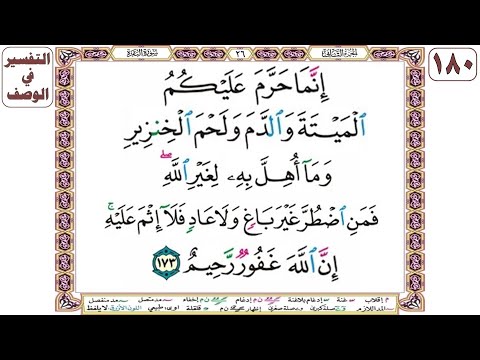 التفسير
في
الوصف
١٨٠
سورة البقرة
٢٦
الجزء الثاني
إِنَّمَا حَرَّمَ عَلَيْكُمُ
ٱلْمَيْتَةَ وَٱلدَّمَ وَلَحْمَ ٱلْخِنزِيرِ
وَمَآ أُهِلَّ بِهِۦ لِغَيْرِ ٱللَّهِ ۖ
فَمَنِ ٱضْطُرَّ غَيْرَ بَاغٍ وَلَا عَادٍ فَلَآ إِثْمَ عَلَيْهِ ۚ
إِنَّ ٱللَّهَ غَفُورٌ رَّحِيمٌ ١٧٣